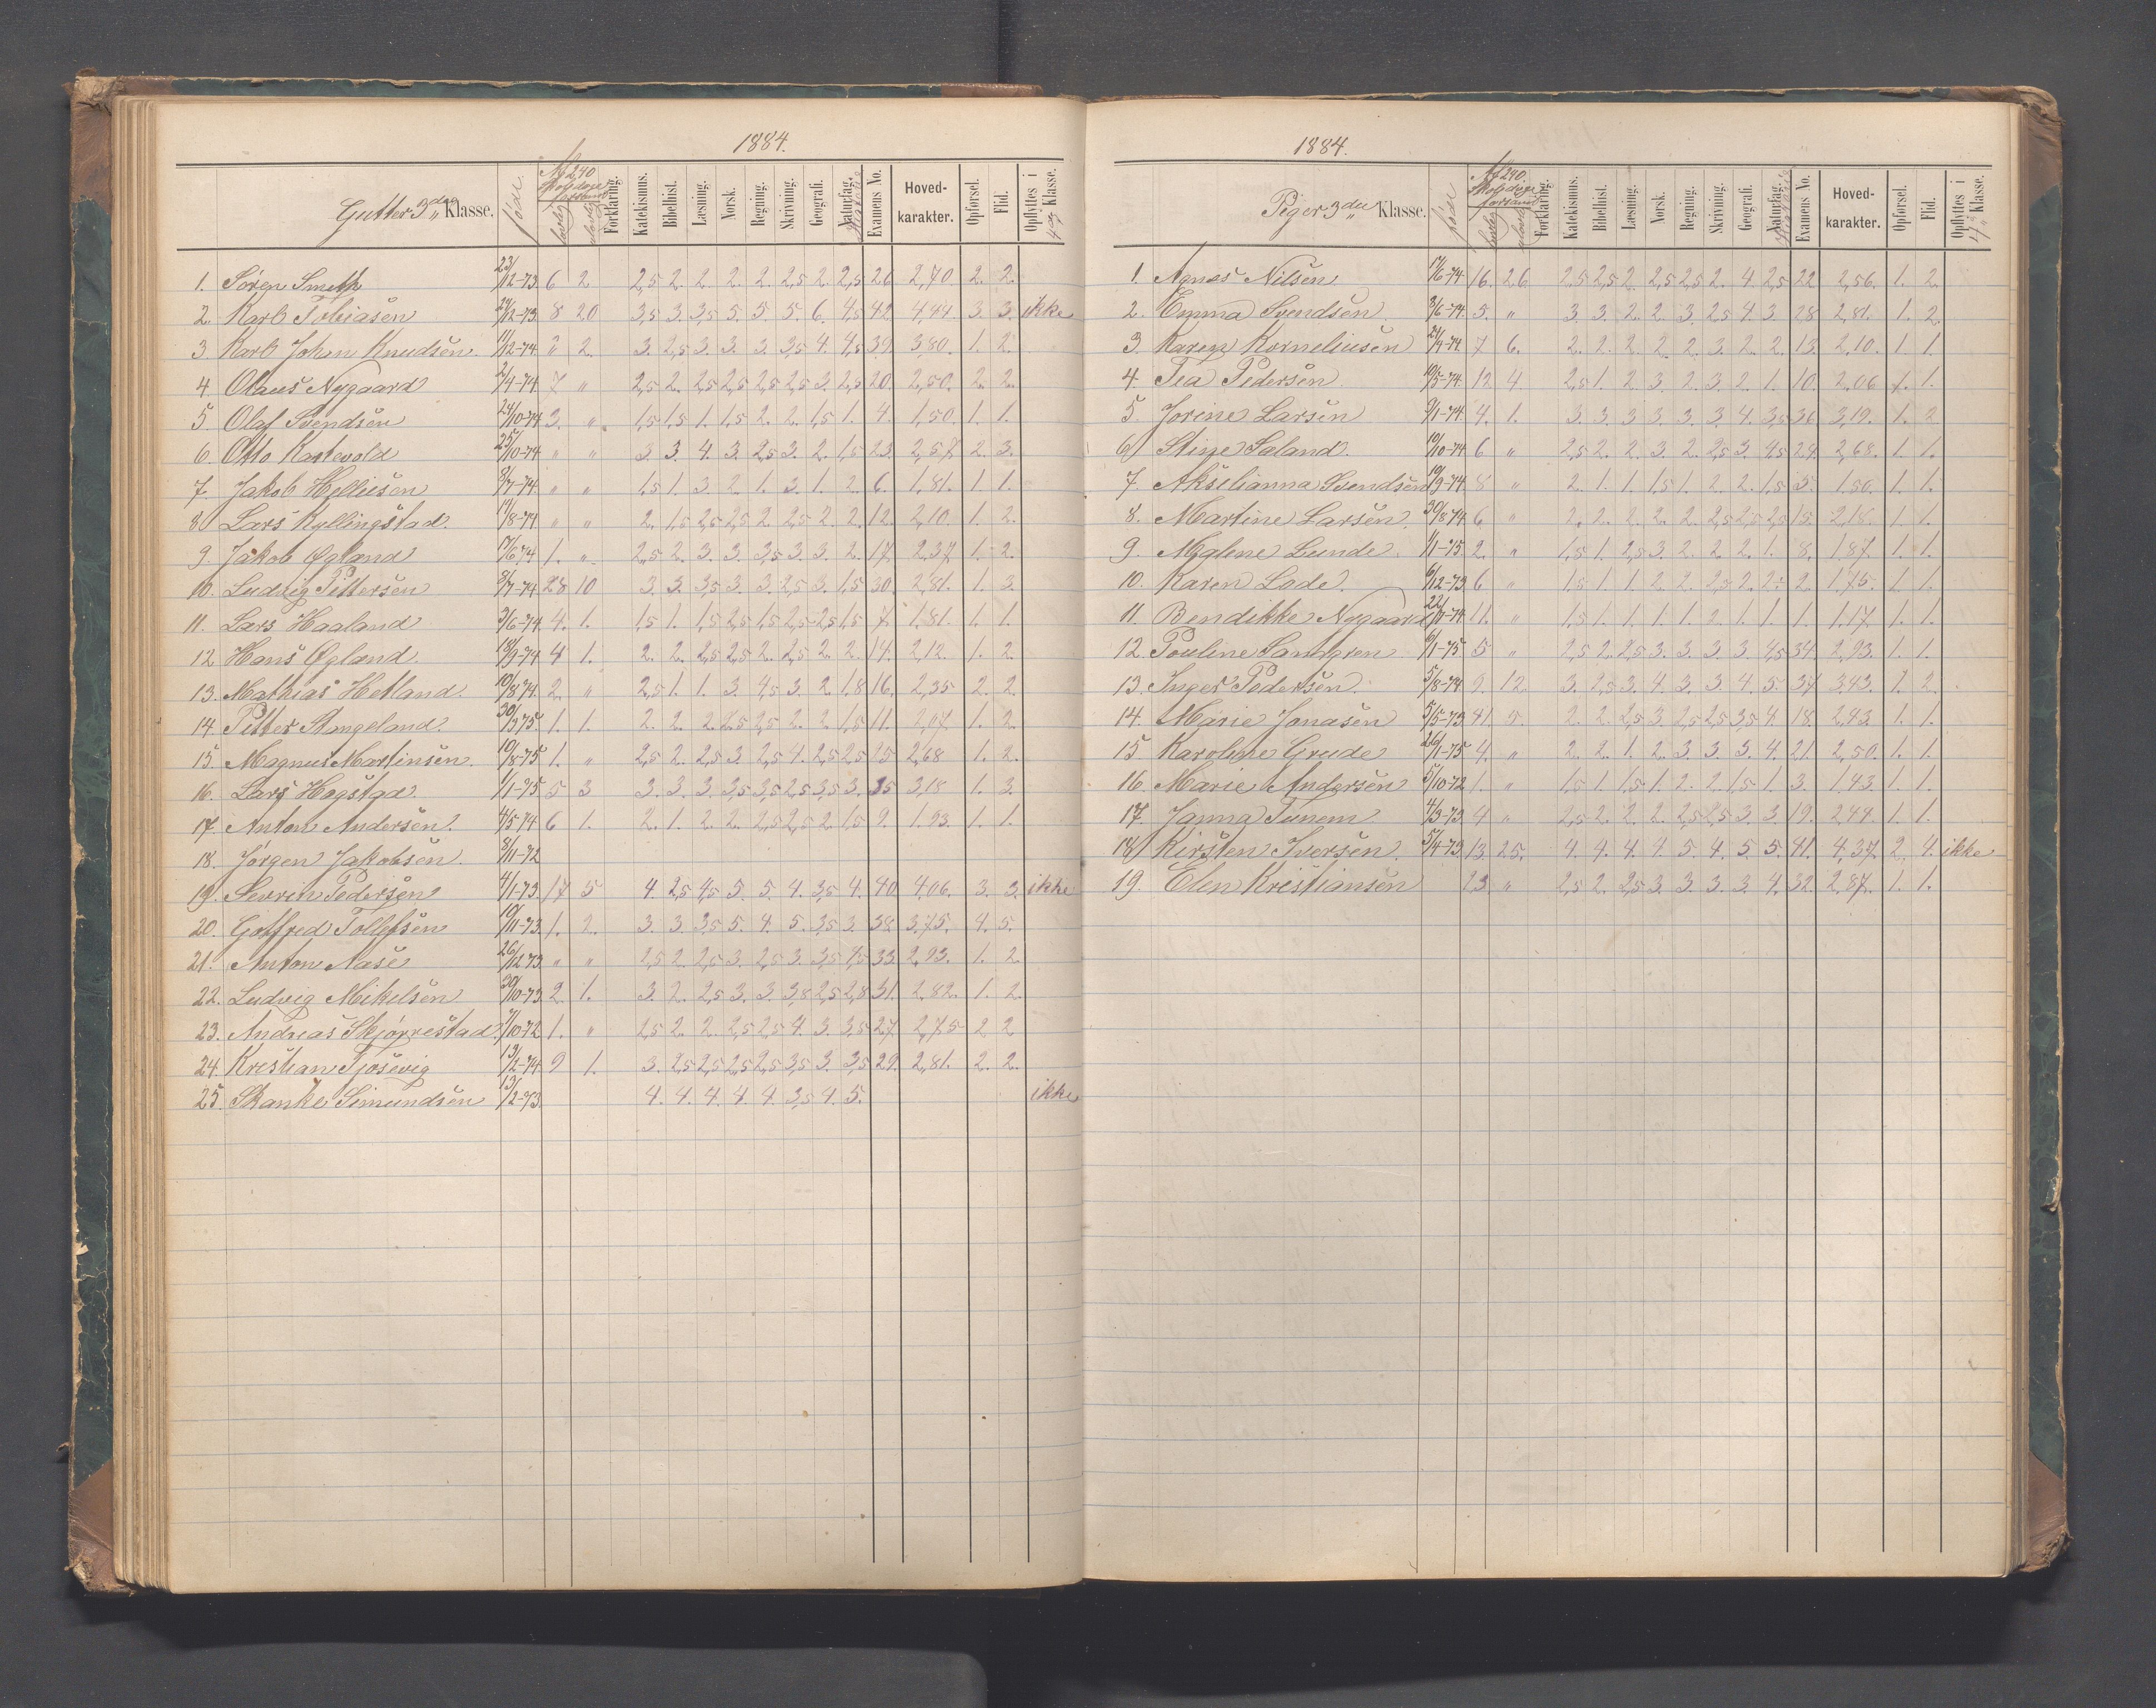 1884.
Gutter 3die Klasse. født. Af 240 Skoledage forsømt lovlig ulovlig Forklaring. Katekismus. Bibelhist. Læsning. Norsk. Regning. Skrivning. Geografi. Naturfag. Historie Examens No. Hoved-karakter. Opførsel. Flid. Opflyttes i 4de Klasse.
1. Søren Smeth 23/12-73 6 2 2,5 2. 2. 2. 2. 2,5 2. 2,5 26 2,70 2. 2.
2. Karl Tobiasen 29/12-73 8 20 3,5 3. 3,5 5. 5. 5. 6. 4,5 42 4,44. 3. 3. ikke
3 Karl Johan Knudsen 11/12-74. 2 2. 3. 2,5 3. 3. 3. 3,5 4. 4,5 39. 3,80. 1. 2.
4 Olaus Nygaard 2/4-74. 7 " 2,5 2. 2,5 2,5 2,5 2,5 3. 2,5 20. 2,50. 2. 2.
5 Olaf Svendsen 24/10-74 3. " 1,5 1,5 1. 1,5 2. 2. 1,5 1. 4. 1,50. 1. 1.
6. Otto Kartevold 25/10-74 " " 3 3. 4. 3. 2,5 3. 2. 1,5 23. 2,57 2. 3.
7. Jakob Helliesen 8/7-74. " " 1,5 1. 3. 2. 1. 3. 1. 2. 6. 1,81. 1. 1.
8 Lars Kyllingstad. 14/8-74 " " 2. 1,5 2,5 2,5 2. 2,5 2. 2. 12. 2,10. 1. 2.
9. Jakob Øgland 17/6 74 1. " 2,5 2. 3. 3. 3,5 3. 3. 2. 17. 2,37. 1. 2.
10. Ludvig Pettersen 3/7-74 28 10 3. 3. 3,5 3. 3. 2,5 3. 1,5 30. 2,81. 1. 3.
11. Lars Haaland 3/6-74. 4. 1. 1,5 1. 1,5 2,5 1,5 2,5 2,5 1,5 7. 1,81. 1. 1.
12 Hans Øgland. 18/9-74 4 1. 2. 2. 2,5 2,5 2. 2,5 2. 2. 14. 2,12. 1. 2.
13. Mathias Hetland. 10/8 74. 2. " 2,5 1. 1. 3. 4,5 3. 2. 1.8 16. 2,35 2. 2.
14. Petter Stangeland. 30/3 75. 1. 1. 2. 2. 2. 2,5 2,5 2. 2. 1,5 11. 2,07. 1. 2.
15. Magnus Martinsen. 10/8-75 1. " 2,5 2. 2,5 3. 2,5 4. 2,5 2,5 25 2,68 1. 2.
16. Lars Hogstad. 1/1-75 5 3 3. 3. 3. 3,5 3,5 2,5 3,5 3. 35 3,18 1. 3.
17. Anton Andersen. 4/5-74 6 1. 2. 1. 2. 2. 2,5 2,5 2. 1,5 9. 1.93. 1. 1.
18. Jørgen Jakobsen. 3/11-72
19. Severin Pedersen 4/1-73 17 5 4. 2,5 4,5 5. 5. 4. 3,5 4. 40 4,06. 3. 3. ikke
20. Gotfred Tollefsen 19/11-73 1. 2. 3. 3. 3,5 5. 4. 5. 3,5 3. 38 3,75. 4. 5.
21. Anton Aase 26/12 73 " " 2,5 2. 2,5 3. 2,5 3. 3,5 4,5 33. 2,93. 1. 2.
22. Ludvig Mikelsen 30/10-73 2. 1. 3. 2. 2,5 3. 3. 3,8 2,5 2,8 31. 2,82. 1. 2.
23. Andreas Skjørrestad 7/10-72 1. " 2,5 2. 2. 2,5 2,5 4. 3. 3,5 27. 2,75 2 2
24. Krestian Tjosevig 13/2-74 9 1. 3. 2,5 2,5 2,5 2,5 3,5 3. 3,5 29. 2,81. 2. 2.
25. Skanke Simundsen 13/2-73. 4. 4. 4. 4. 4. 3,5 4. 5. ikke
1884.
Piger 3die Klasse. født Af 240. Skoledage forsømt lovlig ulovlig Forklaring. Katekismus. Bibelhist. Læsning. Norsk. Regning. Skrivning. Geografi. Naturfag. Historie Examens No. Hoved-karakter. Opførsel. Flid. Opflyttes i 4de Klasse.
1. Agnes Nilsen 17/6-74 16. 26 2,5 2,5 2. 2,5 2,5 2. 4. 2,5 22. 2,56. 1. 2.
2. Emma Svendsen. 8/6-74. 5. " 3. 3. 2. 2. 3. 2,5 4. 3. 28 2,81. 1. 2.
3. Karen Korneliusen 24/9-74. 7 6. 2. 2. 2. 2. 2. 3. 2. 2. 13. 2,10. 1 1.
4. Tea Pedersen. 19/5-74. 12 4 2,5 1. 2. 3. 2. 3. 2. 1. 10. 2,06 1. 1.
5. Jorine Larsen 9/1-74 4. 1. 3. 3. 3. 3. 3. 3. 4. 3,5 36 3,19. 1. 2
6 Stine Saland. 19/10-74 6 " 2,5 2. 2. 3. 2. 2,5 3. 4,5 24. 2,68. 1. 1.
7. Akselianna Svendsen 19/9-74 8 " 2. 1. 1. 1,5 1. 2. 2. 1,5 5. 1.50. 1. 1.
8. Martine Larsen. 30/8 74 6 " 2. 2. 2. 2. 2. 2,5 2,5 2,5 15. 2,18. 1. 1.
9. Malene Lunde. 1/1-75 2. " 1,5 1. 2,5 3. 2. 2. 2. 1. 8. 1,87. 1. 1.
10. Karen Lode. 6/12-73 6 " 1,5 1. 1. 2. 2. 2,5 2. 2. 2. 1.75. 1. 1.
11. Bendikke Nygaard 22/11-74 11. " 1,5 1. 1. 1. 1. 2. 1. 1. 1. 1.17. 1. 1.
12. Pouline Sandgren 6/1-75. 5 " 2,5 2. 2,5 3. 3. 3. 3. 4,5 34. 2,93. 1. 1.
13. Inger Pedersen. 5/8-74. 9. 12. 3. 2,5 3. 4. 3. 3. 4. 5. 37 3,43. 1. 2.
14. Marie Jonasen 5/5-73 41. 5. 2. 2. 2,5 3. 2,5 2,5 3,5 4. 18. 2,43. 1. 1.
15. Karoline Grude 26/1-75 4. " 2. 2. 1. 2. 3. 3. 3. 4. 21. 2,50. 1. 1.
16. Marie Andersen 5/10-72 1. " 1,5 1. 1,5 1. 2. 2. 1,5 1. 3. 1.43. 1. 1.
17. Janna Tunem 4/3-73 4 " 2,5 2. 2. 2. 2,5 2,5 3. 3. 19. 2,44. 1. 1.
18. Kirsten Iversen. 5/4-73 13. 25. 4. 4. 4. 4. 5. 4. 5. 5. 41. 4,37. 2. 4. ikke
19. Elen Kristiansen 23. " 2,5 2. 2,5 3. 3. 3. 3. 4. 32. 2,87. 1. 1.